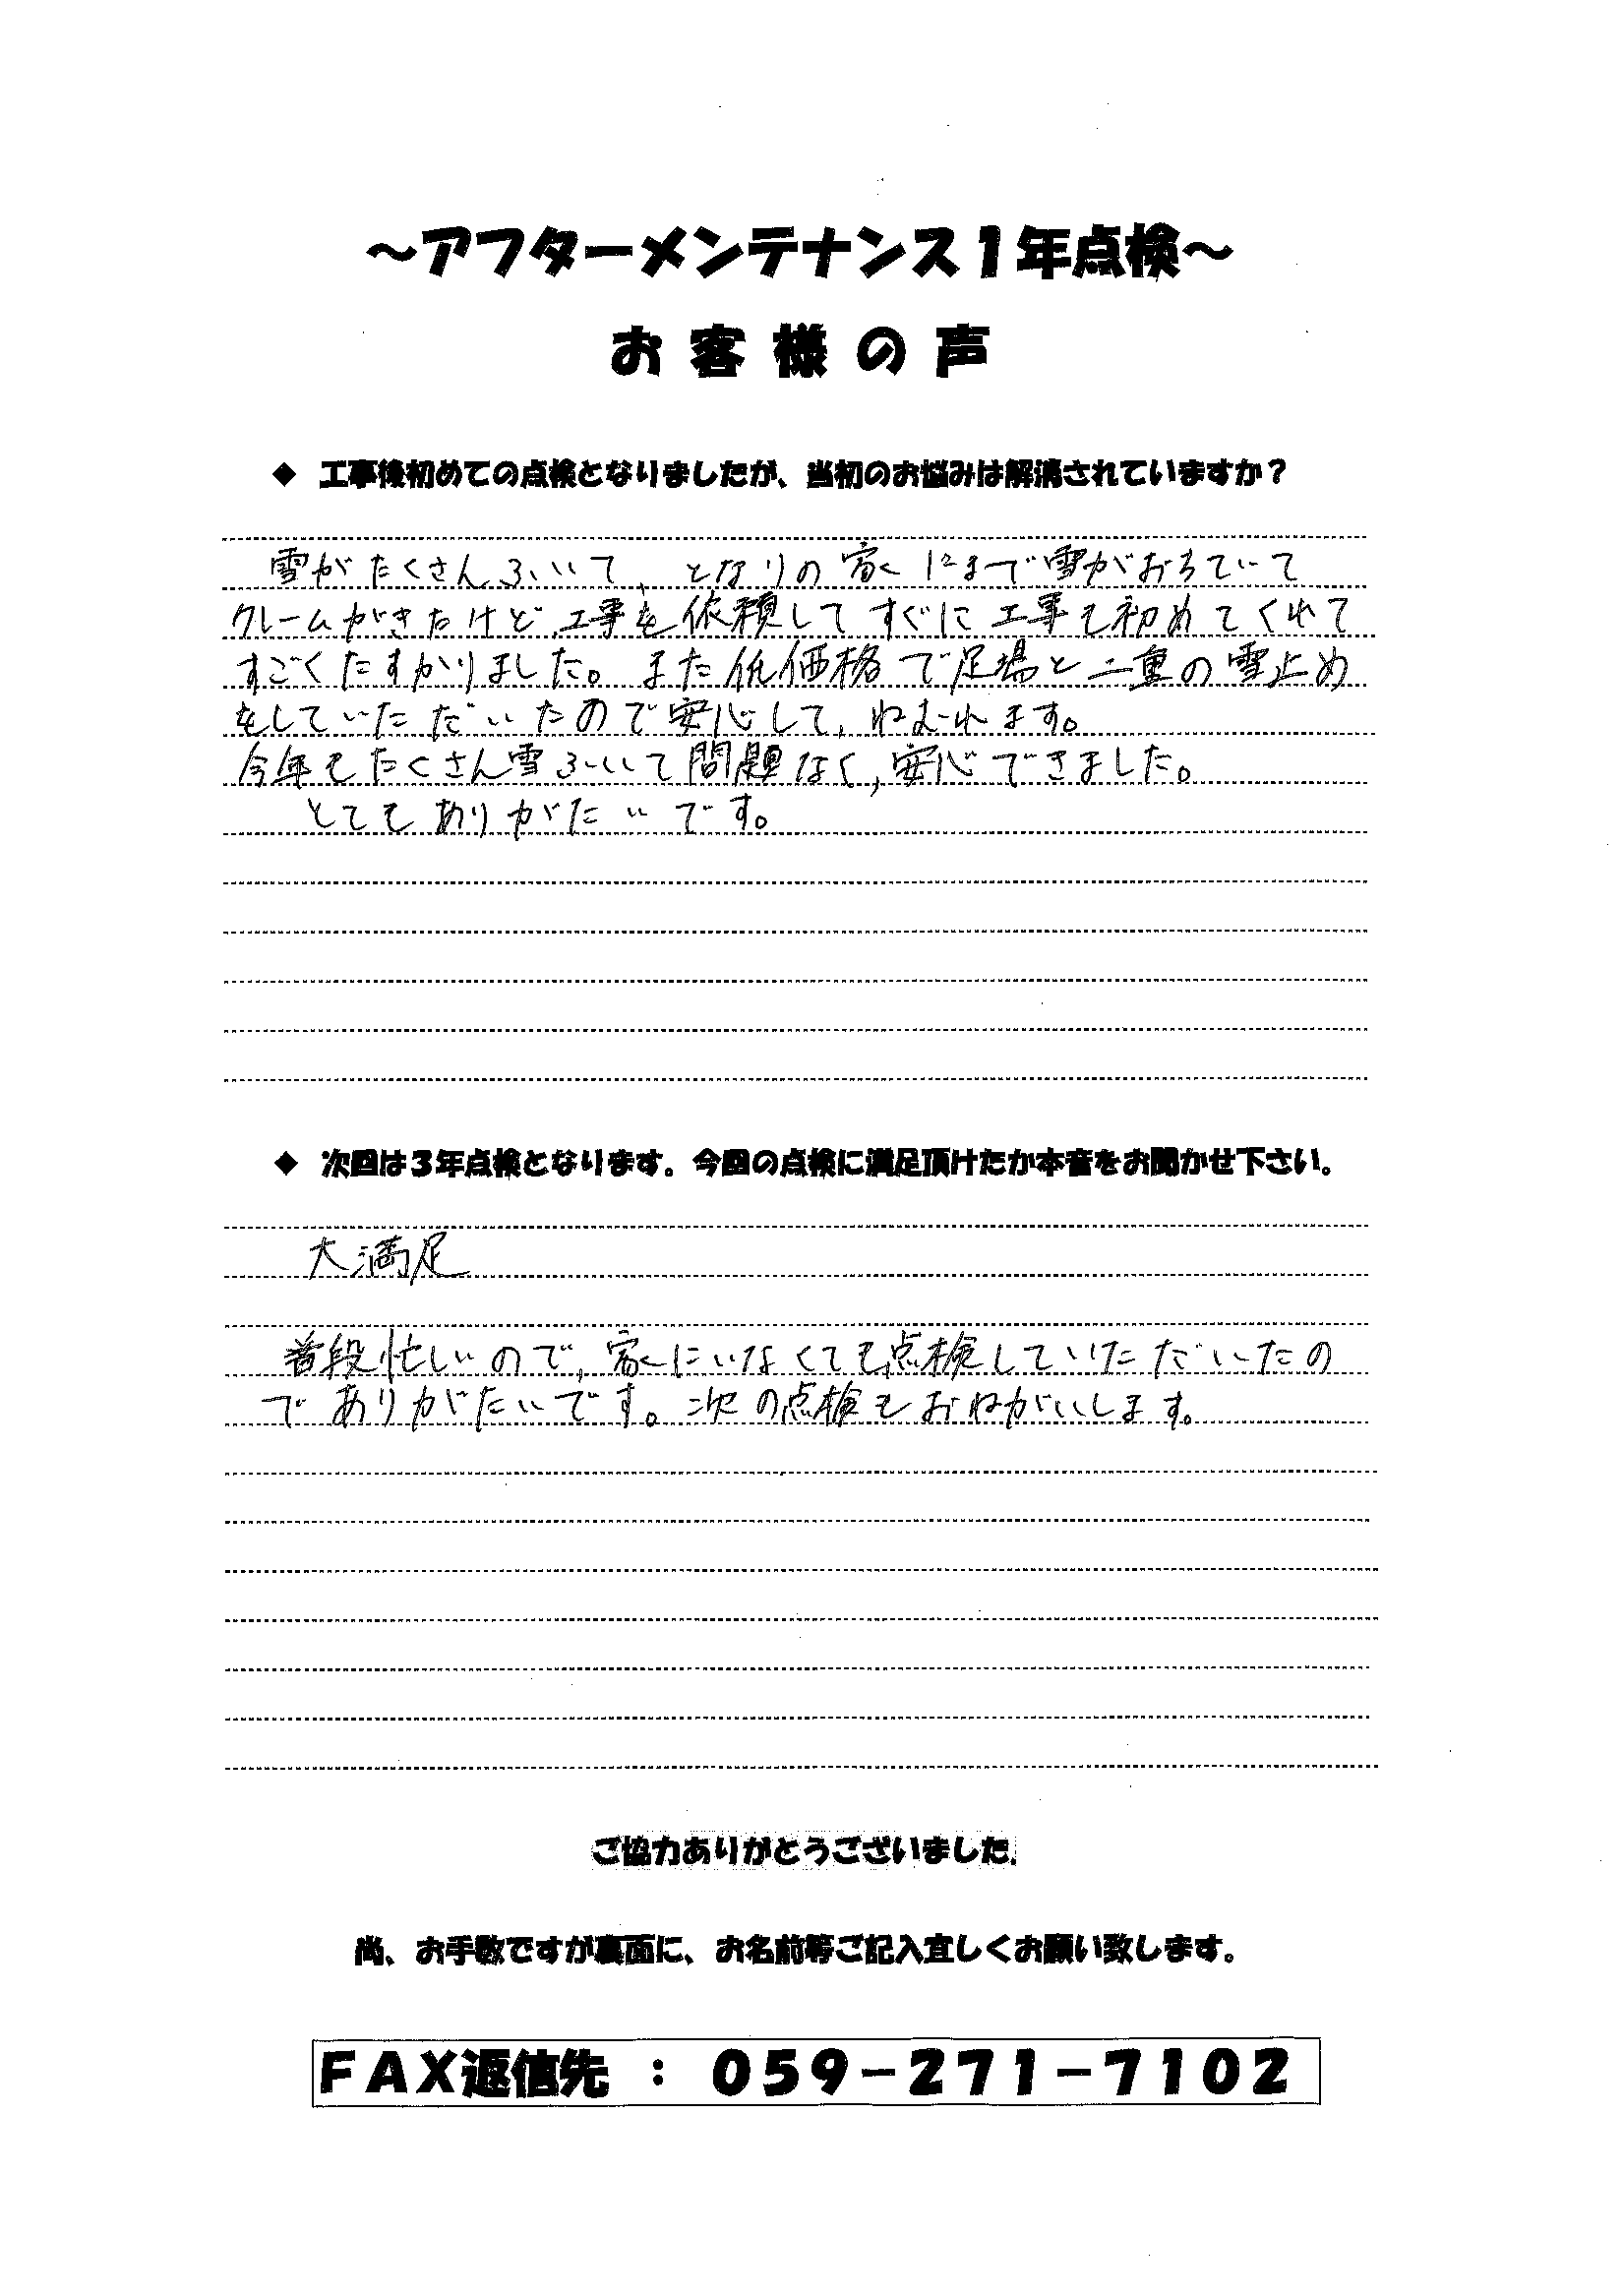 ～アフターメンテナンス1年点検～
お客様の声
◆ 工事後初めての点検となりましたが、当初のお悩みは解消されていますか？
雪がたくさんふいて、となりの家にまで雪がおちていて
クレームがきたけど、工事を依頼してすぐに工事も初めてくれて
すごくたすかりました。また低価格で足場と二重の雪止め
をしていただいたので安心して、ねむれます。
今年もたくさん雪ふいて問題なく、安心できました。
とてもありがたいです。
◆ 次回は３年点検となります。今回の点検に満足頂けたか本音をお聞かせ下さい。
大満足
普段忙しいので、家にいなくても点検していただいたの
でありがたいです。次の点検もおねがいします。
ご協力ありがとうございました。
尚、お手数ですが裏面に、お名前等ご記入宜しくお願い致します。
ＦＡＸ返信先 ： ０５９－２７１－７１０２